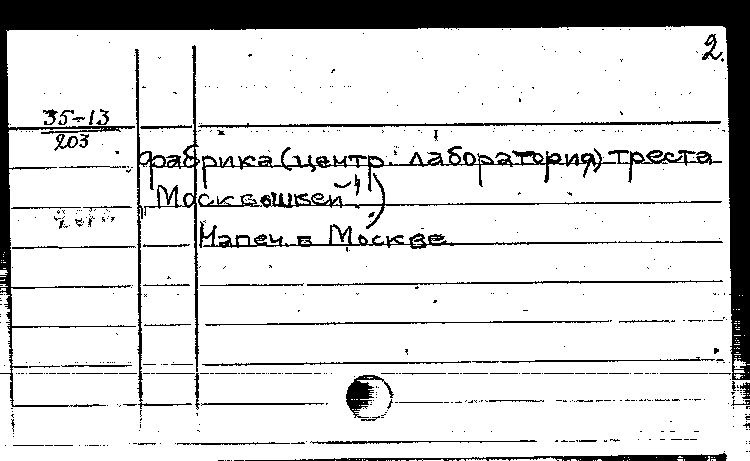 2.
35-13
203
фабрика (центр. лаборатория) треста
Москвошвей")
Напеч. в Москве.